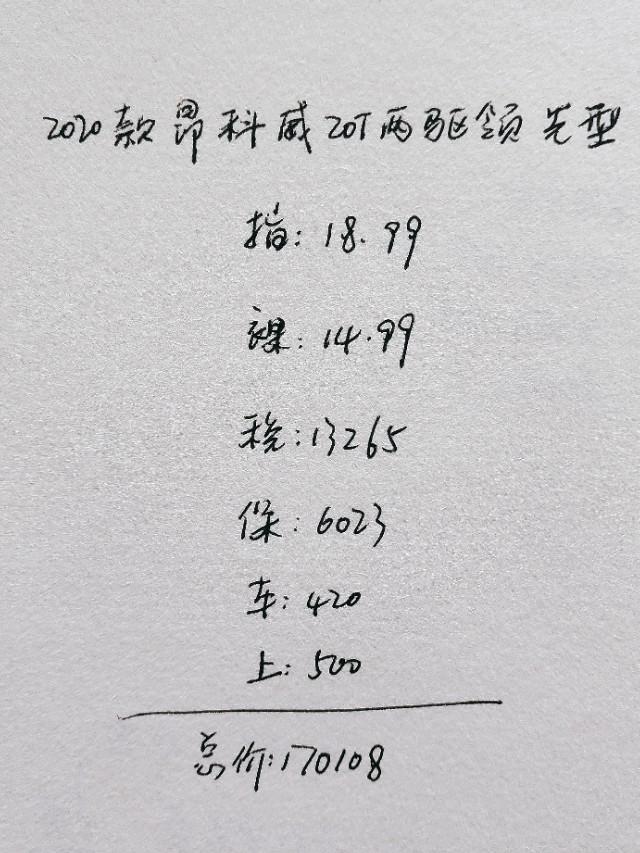 2020款昂科威20T两驱领先型
指: 18.99
裸: 14.99
税: 13265
保: 6023
车: 420
上: 500
总价: 170108